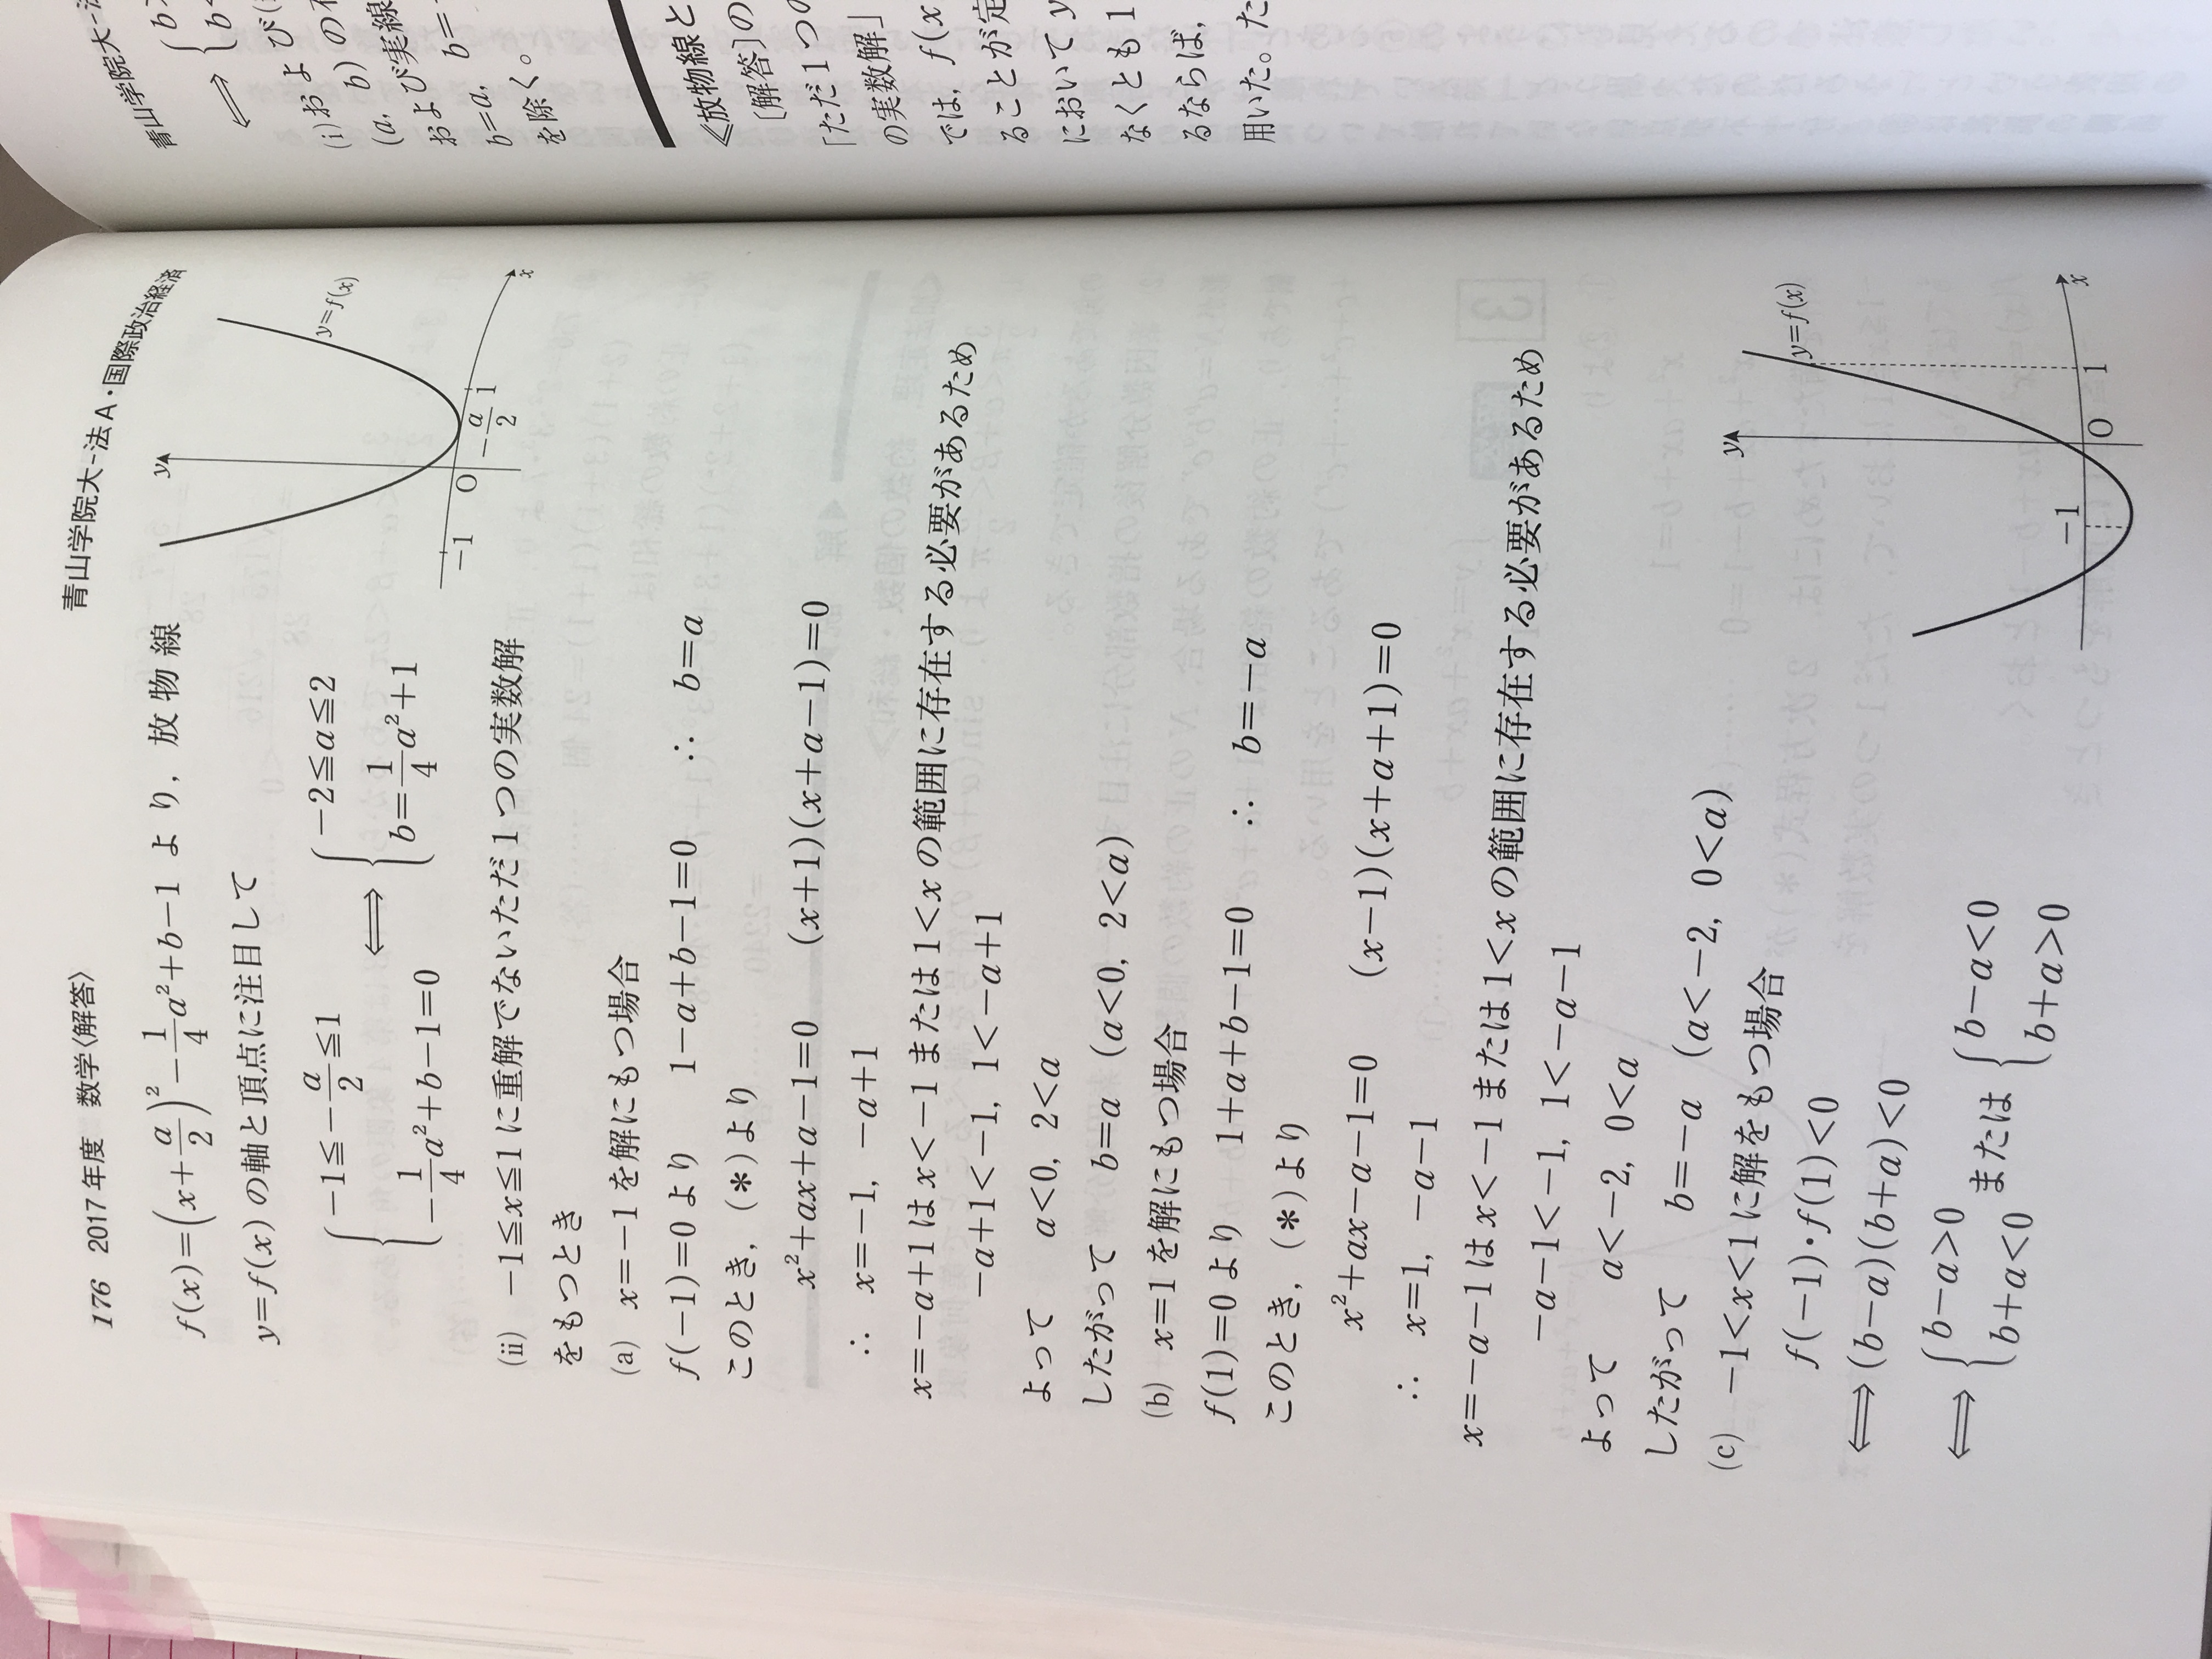 176 2017年度 数学〈解答〉 青山学院大-法A・国際政治経済
f(x)=(x+a/2)²-1/4a²+b-1 より, 放物線
y=f(x) の軸と頂点に注目して
{-1≦-a/2≦1
-1/4a²+b-1=0
⟺ {-2≦a≦2
b=1/4a²+1
y
y=f(x)
-1 O -a/2 1 x
(ii) -1≦x≦1 に重解でないただ1つの実数解
をもつとき
(a) x=-1 を解にもつ場合
f(-1)=0 より 1-a+b-1=0 ∴ b=a
このとき, (*)より
x²+ax+a-1=0 (x+1)(x+a-1)=0
∴ x=-1, -a+1
x=-a+1 は x<-1 または 1<x の範囲に存在する必要があるため
-a+1<-1, 1<-a+1
よって a<0, 2<a
したがって b=a (a<0, 2<a)
(b) x=1 を解にもつ場合
f(1)=0 より 1+a+b-1=0 ∴ b=-a
このとき, (*)より
x²+ax-a-1=0 (x-1)(x+a+1)=0
∴ x=1, -a-1
x=-a-1 は x<-1 または 1<x の範囲に存在する必要があるため
-a-1<-1, 1<-a-1
よって a<-2, 0<a
したがって b=-a (a<-2, 0<a)
(c) -1<x<1 に解をもつ場合
f(-1)・f(1)<0
⟺(b-a)(b+a)<0
⟺{b-a>0
b+a<0
または {b-a<0
b+a>0
y
y=f(x)
-1 O 1 x
青山学院大-
⟺ {b
(i)および(
(a, b) の
および実線
b=a, b=
を除く。
《放物線と
〔解答〕の
「ただ1つの
の実数解」
では, f(x
ることが定
において y
なくとも1
るならば,
用いた。た